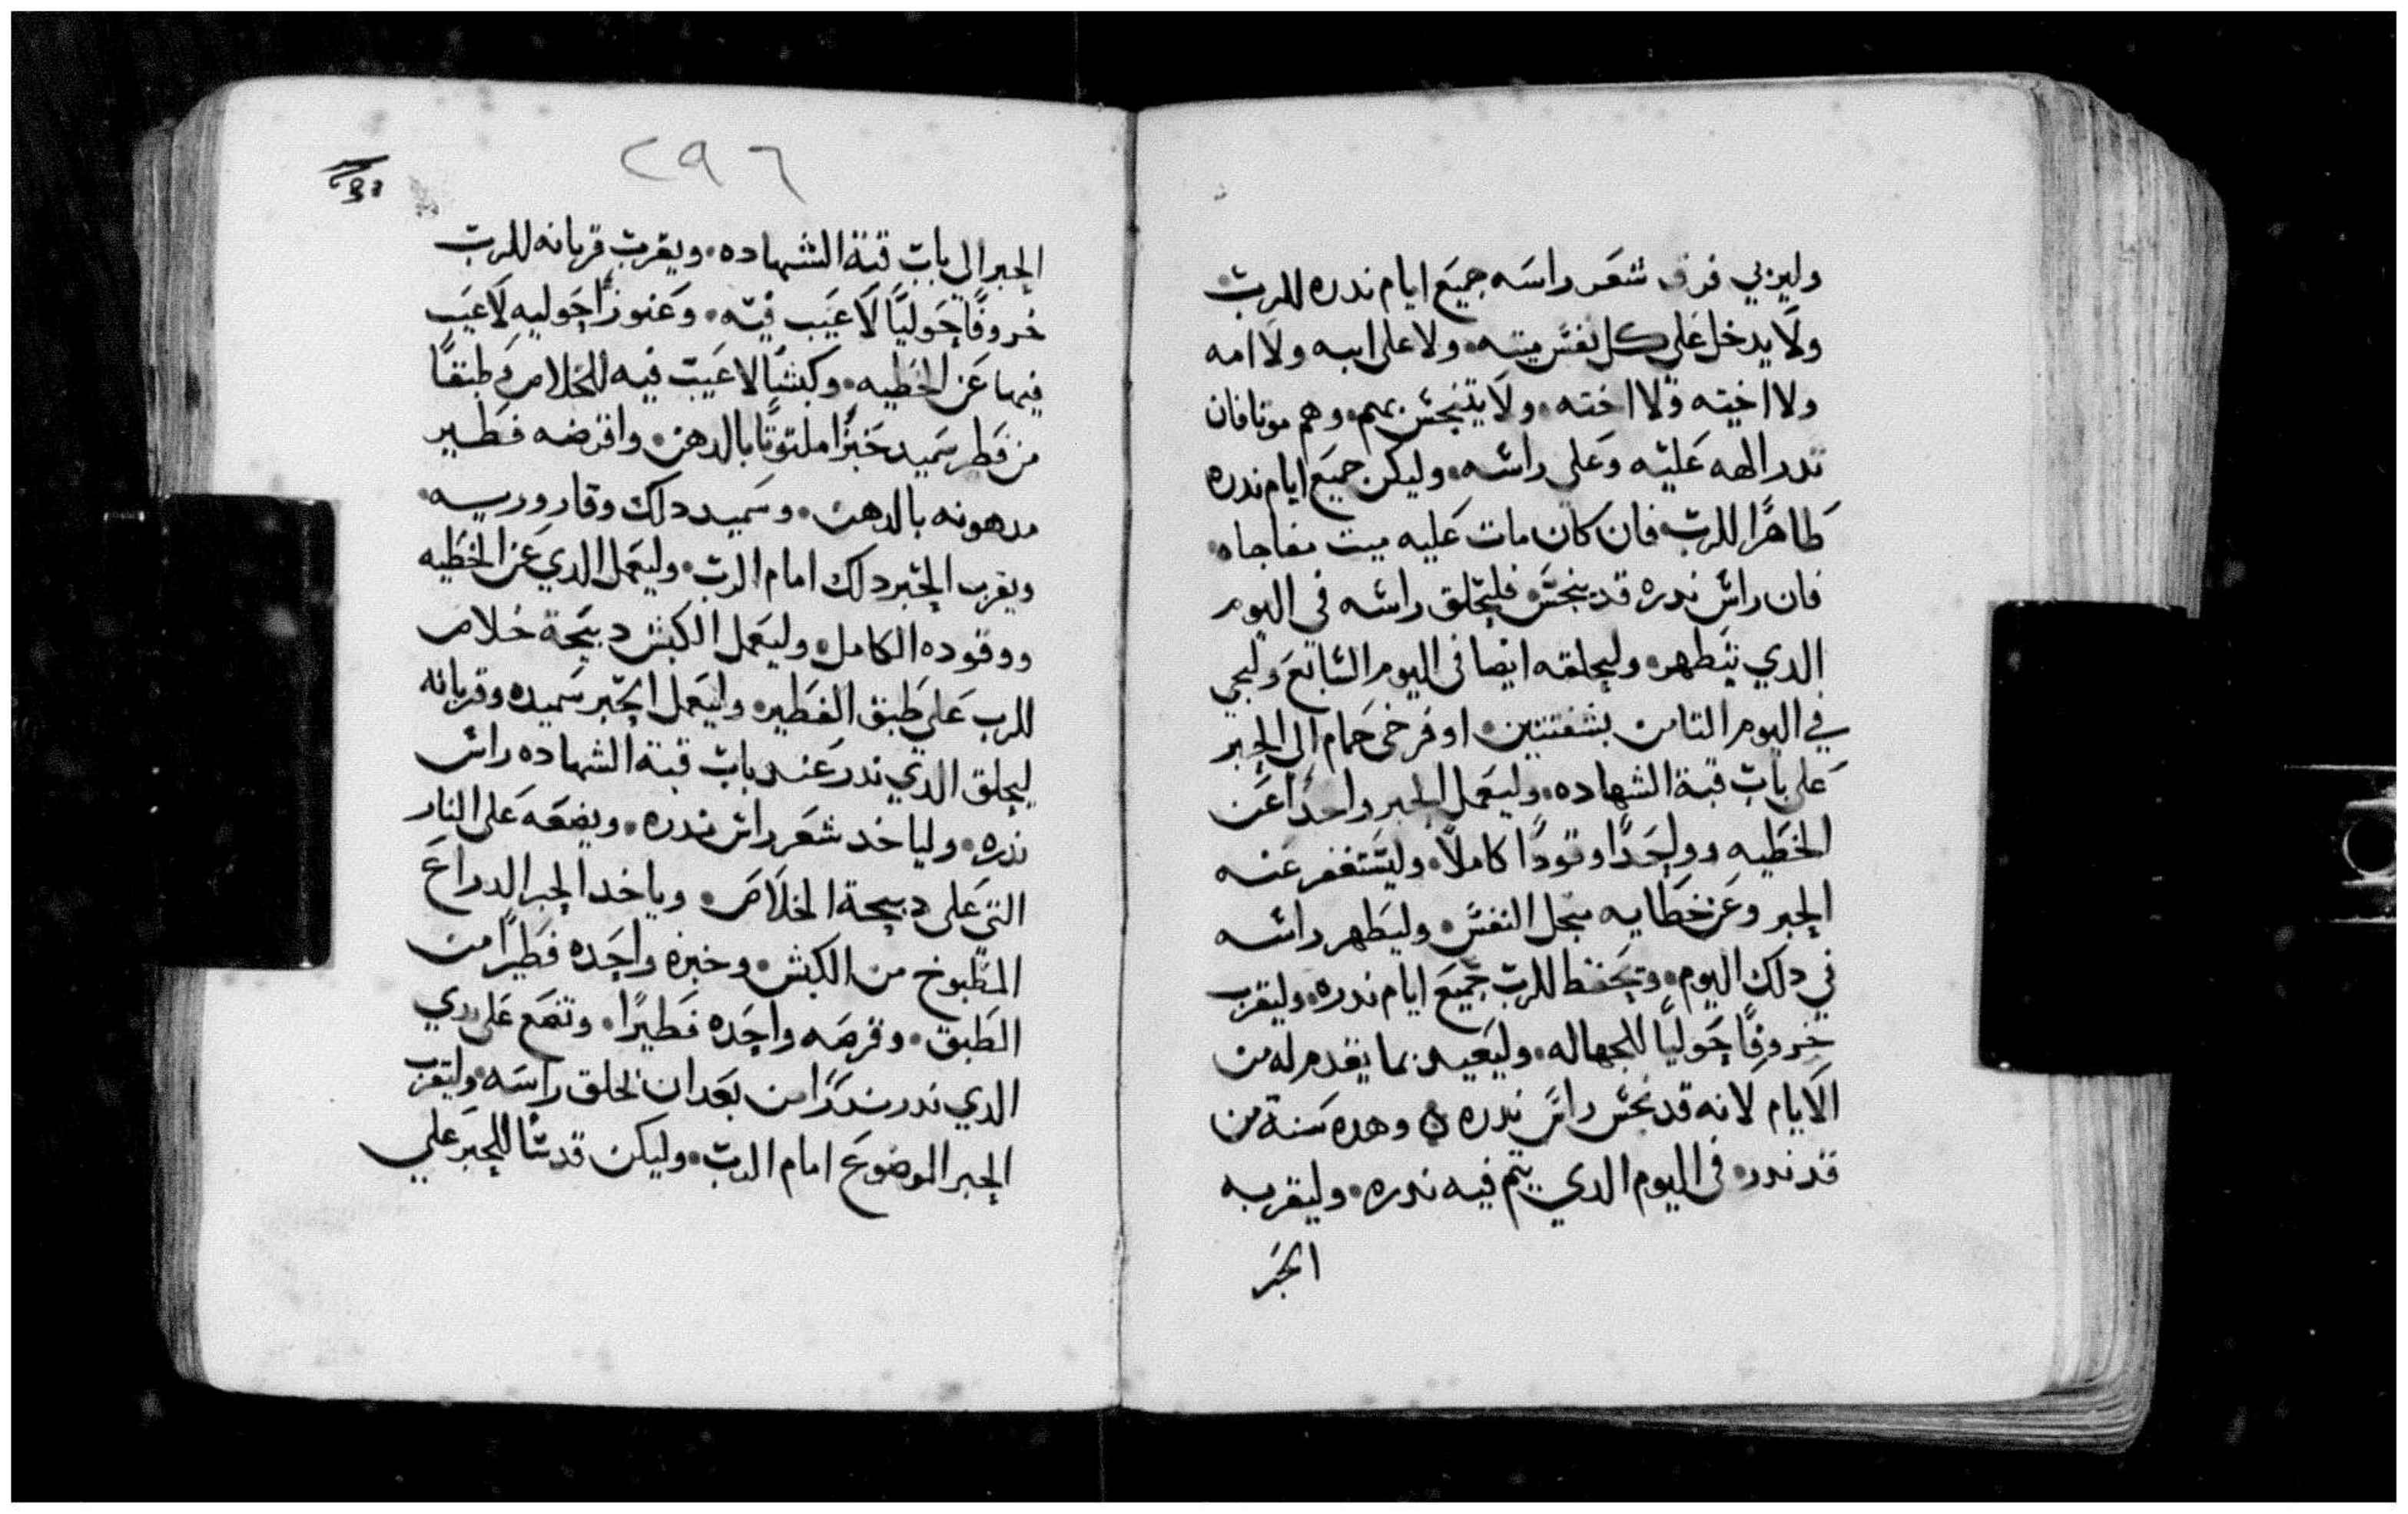 وليربي فرق شعر راسه جميع ايام ندره للرب
ولا يدخل على كل نفس ميته ولا على ابيه ولا امه
ولا اخيه ولا اخته ولا يتنجس بهم وهم موتا فان
ندر الهه عليه وعلى راسه وليكن جميع ايام ندره
طاهرًا للرب فان كان مات عليه ميت مفاجاه
فان راس ندره قد ينجس فليحلق راسه في اليوم
الدي يتطهر وليحلقه ايضا في اليوم السابع وليجي
في اليوم التامن بشفنتين او فرخى حمام الى الحبر
على باب قبة الشهاده وليعمل الحبر واحدًا عن
الخطيه وواحدًا وقودًا كاملًا وليستغفر عنه
الحبر وعن خطايه من اجل النفس وليطهر راسه
في دلك اليوم ويحفظ للرب جميع ايام ندره وليقرب
خروفًا حوليًا للجهاله وليعيد بما يقدم له من
الايام لانه قد نجس راس ندره وهده سنة من
قد ندر في اليوم الدي يتم فيه ندره وليقربه
الحبر
٢٩٦
الحبر الى باب قبة الشهاده ويقرب قربانه للرب
خروفًا حوليًا لا عيب فيه وعنوزًا حوليه لا عيب
فيها عن الخطيه وكبشًا لا عيب فيه للخلاص وطبقًا
من فطير سميد خبزًا ملتوتًا بالدهن واقرضه فطير
مدهونه بالدهن وسميد دلك وقاروريه
ويقرب الحبر دلك امام الرب وليعمل الدي عن الخطيه
ووقوده الكامل وليعمل الكبش دبيحة خلاص
للرب على طبق الفطير وليعمل الحبر سميده وقربانه
ليحلق الدي ندر عند باب قبة الشهاده راس
ندره ولياخد شعر راس ندره ويضعه على النار
التي على دبيحة الخلاص وياخد الحبر الدراع
المطبوخ من الكبش وخبزه واحده فطيرًا من
الطبق وقرصه واحده فطيرًا وتضع على يدي
الدي ندر ندرًا من بعد ان يحلق راسه وليقرب
الحبر الموضوع امام الرب وليكن قدسًا للحبر على